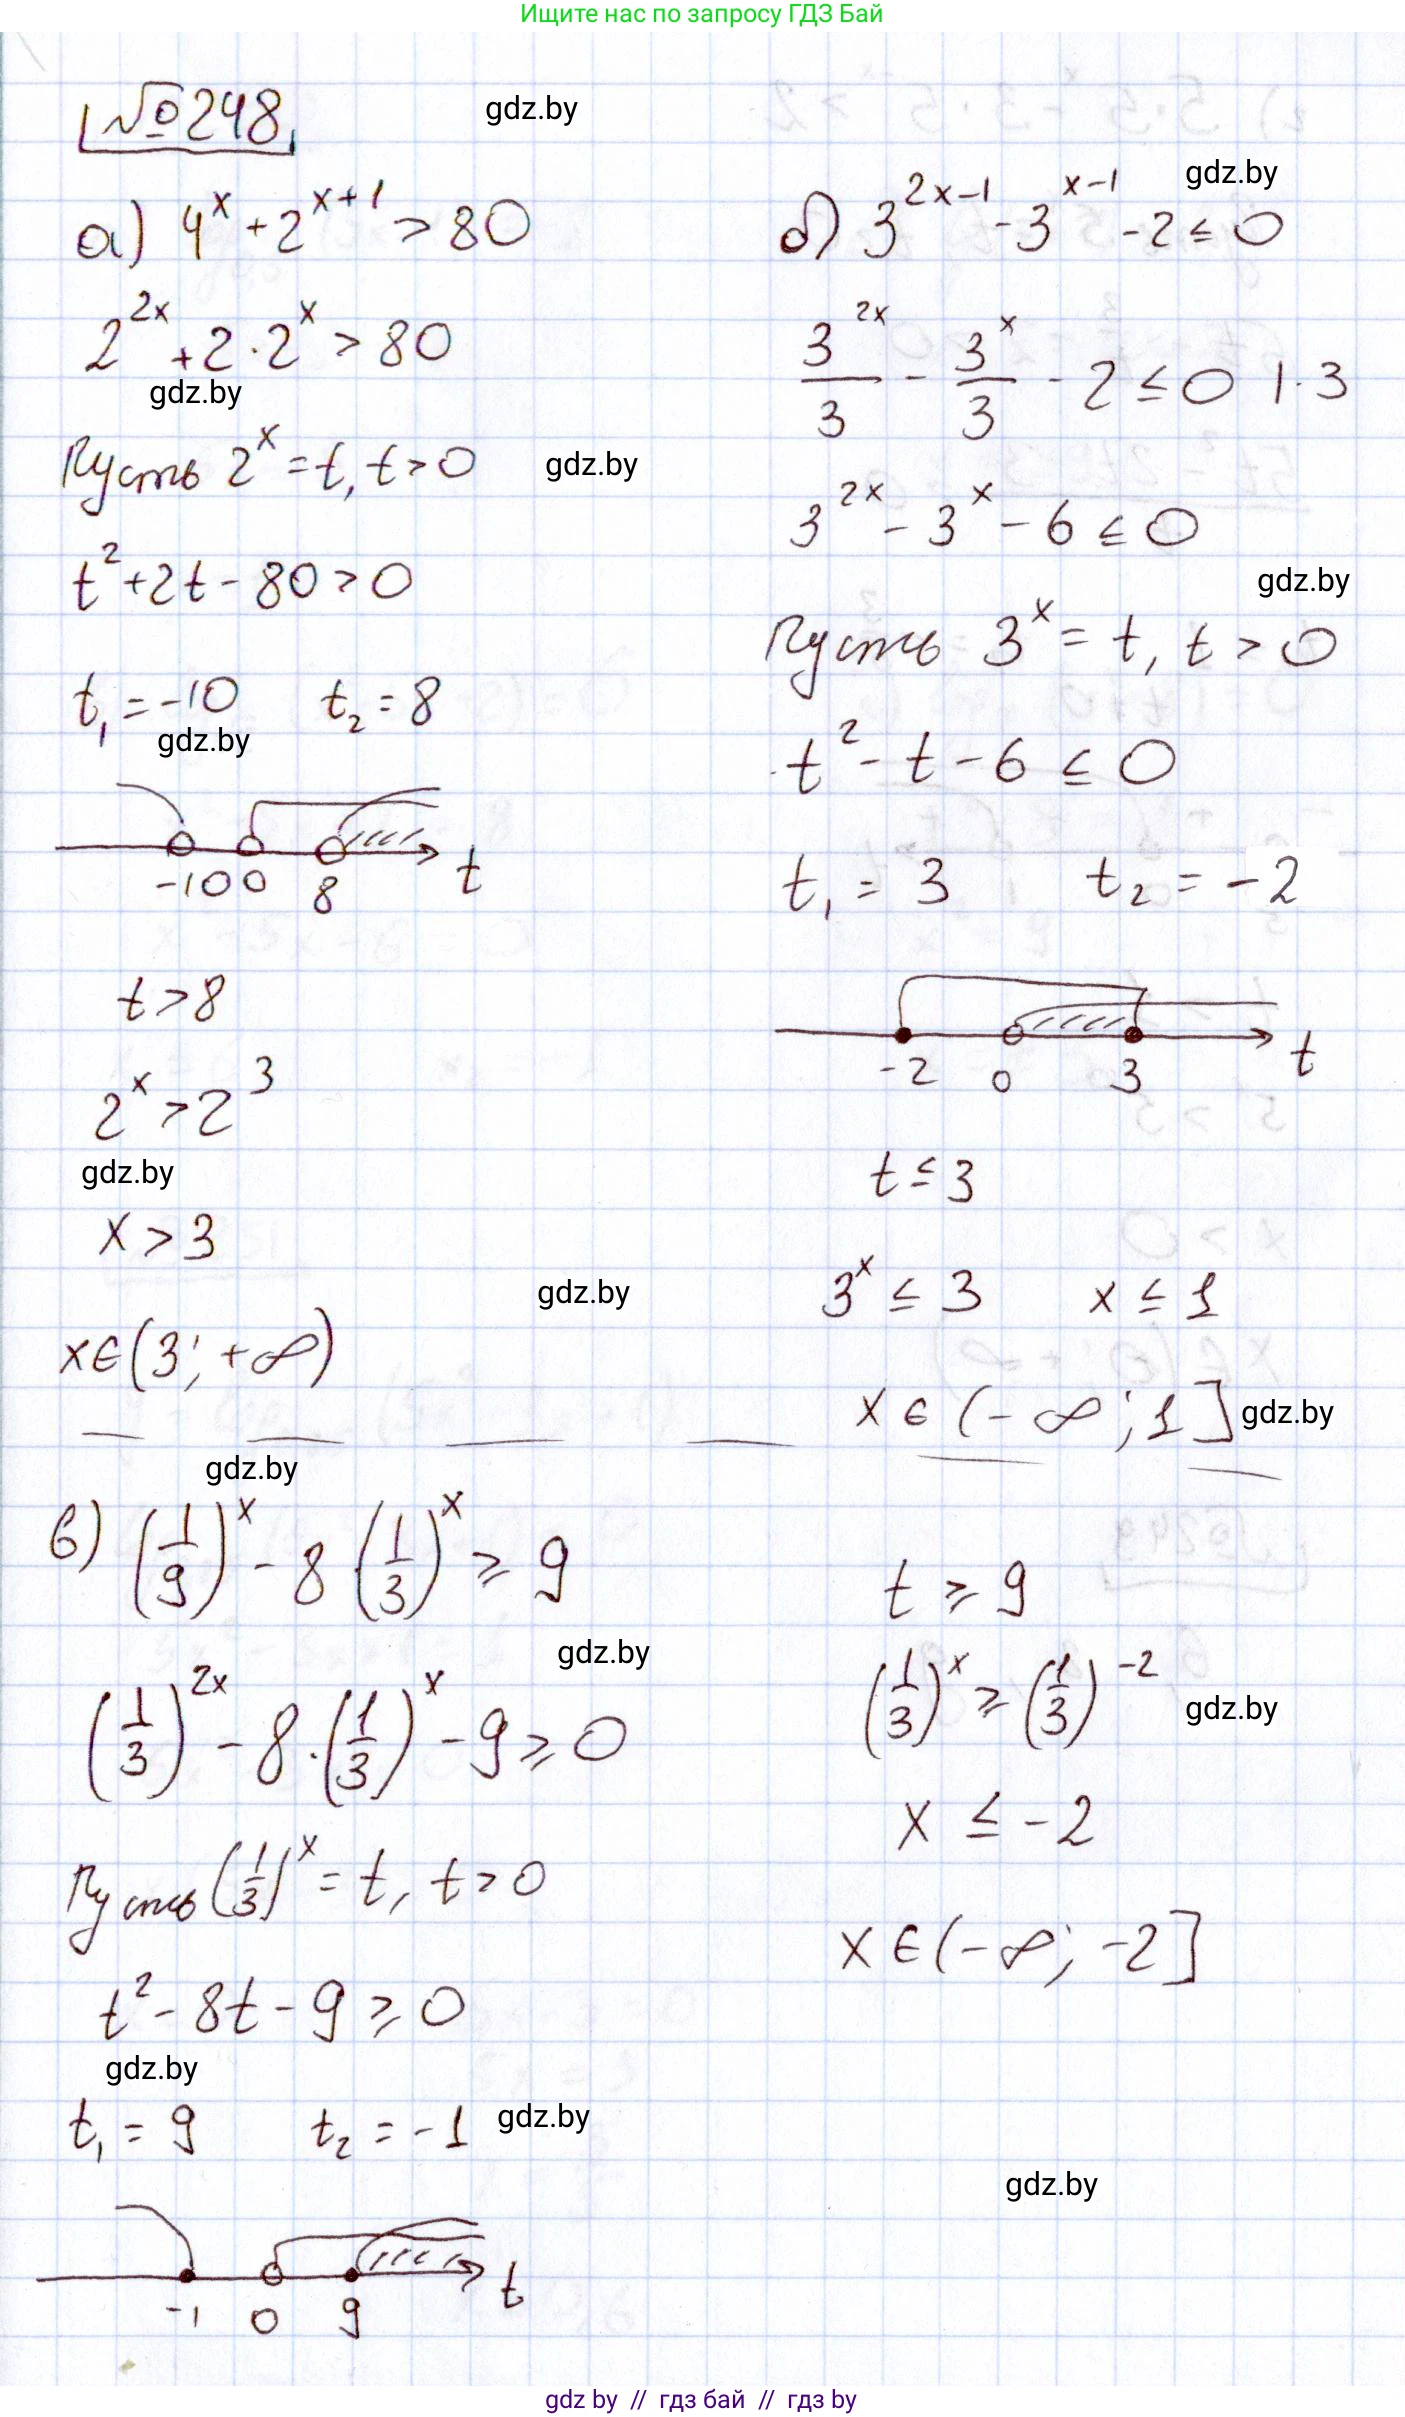 Ищите нас по запросу ГДЗ Бай
№248
gdz.by
а) 4^x + 2^(x+1) > 80
2^(2x) + 2·2^x > 80
gdz.by
Пусть 2^x = t, t > 0
gdz.by
t² + 2t - 80 > 0
t₁ = -10 t₂ = 8
gdz.by
-10 0 8 t
t > 8
2^x > 2^3
gdz.by
x > 3
gdz.by
x ∈ (3; +∞)
gdz.by
б) 3^(2x-1) - 3^(x-1) - 2 ≤ 0
3^(2x)/3 - 3^x/3 - 2 ≤ 0 | · 3
3^(2x) - 3^x - 6 ≤ 0
gdz.by
Пусть 3^x = t, t > 0
t² - t - 6 ≤ 0
t₁ = 3 t₂ = -2
-2 0 3 t
t ≤ 3
3^x ≤ 3 x ≤ 1
x ∈ (-∞; 1]
gdz.by
gdz.by
в) (1/9)^x - 8 (1/3)^x ≥ 9
gdz.by
(1/3)^(2x) - 8·(1/3)^x - 9 ≥ 0
Пусть (1/3)^x = t, t > 0
t² - 8t - 9 ≥ 0
gdz.by
t₁ = 9 t₂ = -1
gdz.by
-1 0 9 t
t ≥ 9
(1/3)^x ≥ (1/3)^(-2)
gdz.by
x ≤ -2
x ∈ (-∞; -2]
gdz.by
gdz by // гдз бай // гдз by